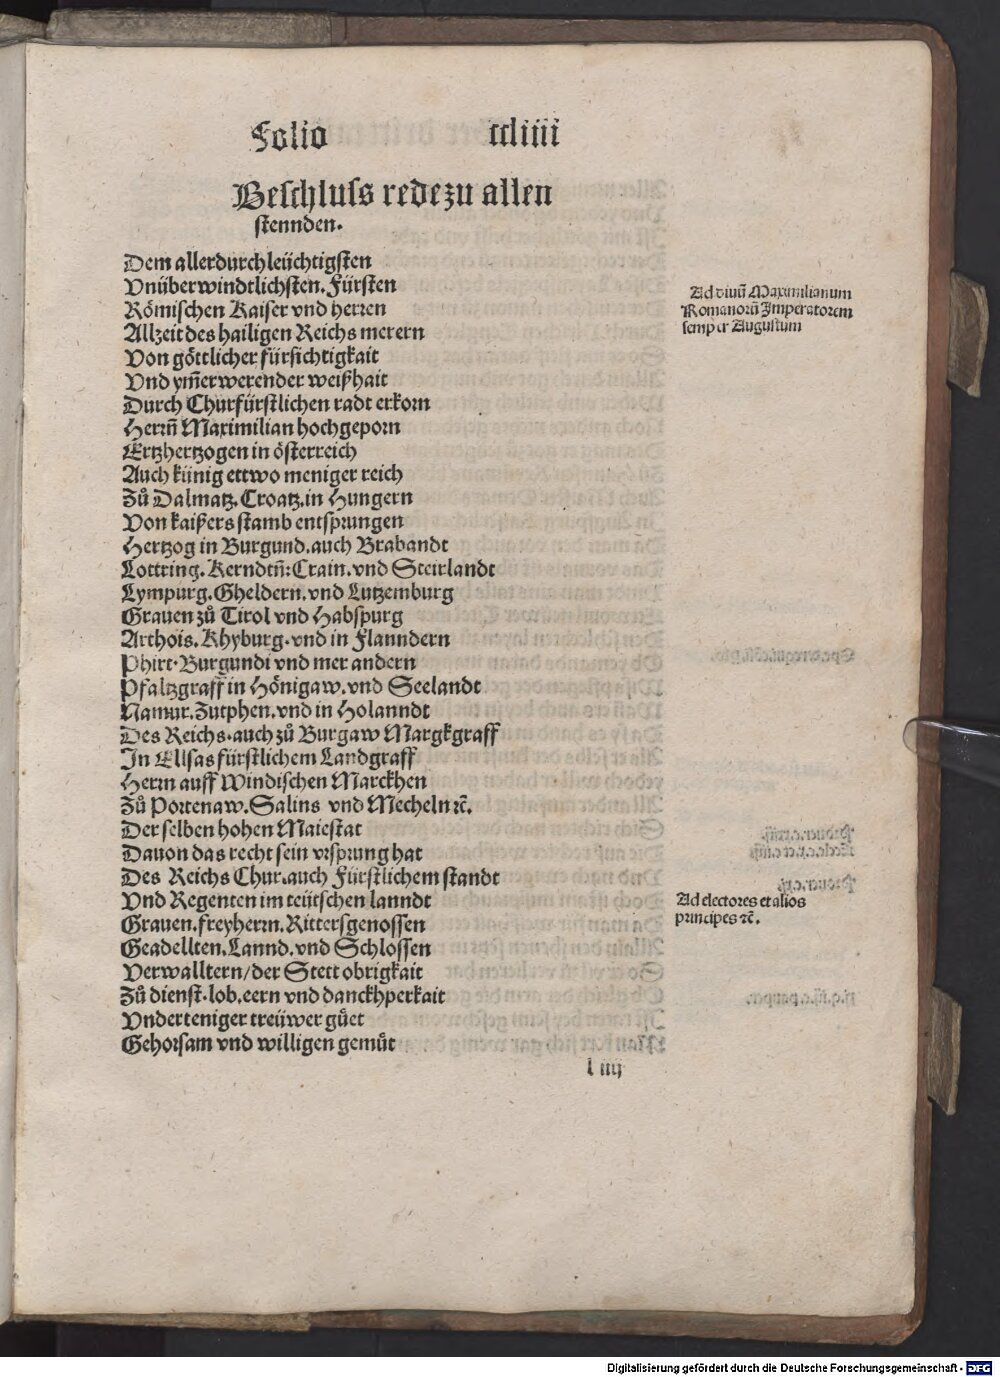 Folio ccliiii
Beschluss rede zu allen
stennden.
Dem allerdurchleüchtigsten
Vnüberwindtlichsten. Fürsten
Römischen Kaiser vnd herren
Allzeit des hailigen Reichs merern
Von göttlicher fürsichtigkait
Vnd ym̃erwerender weißhait
Durch Churfürstlichen radt erkorn
Herrñ Maximilian hochgeporn
Ertzhertzogen in österreich
Auch künig ettwo meniger reich
Zů Dalmatz. Croatz. in Hungern
Von kaißers stamb entsprungen
Hertzog in Burgund. auch Brabandt
Lottring. Kerndtñ: Crain. vnd Steirlandt
Lympurg. Gheldern. vnd Lutzemburg
Grauen zů Tirol vnd Habspurg
Arthois. Khyburg. vnd in Flanndern
Phirt. Burgundi vnd mer andern
Pfaltzgraff in Hönigaw. vnd Seelandt
Namur. Zutphen. vnd in Holanndt
Des Reichs. auch zů Burgaw Margkgraff
In Ellsas fürstlichem Landgraff
Herrn auff Windischen Marckhen
Zů Portenaw. Salins vnd Mecheln ꝛc̃.
Der selben hohen Maiestat
Dauon das recht sein vrsprung hat
Des Reichs Chur. auch Fürstlichem standt
Vnd Regenten im teütschen lanndt
Grauen. freyherrn. Rittersgenossen
Geadellten. Lannd. vnd Schlossen
Verwalltern / der Stett obrigkait
Zů dienst. lob. eern vnd danckhperkait
Vnderteniger treüwer gůet
Gehorsam vnd willigen gemůt
l iiij
Ad diuũ Maximilianum
Romanorũ Imperatorem
semper Augustum
Ad electores et alios
principes ꝛc̃.
Digitalisierung gefördert durch die Deutsche Forschungsgemeinschaft - DFG